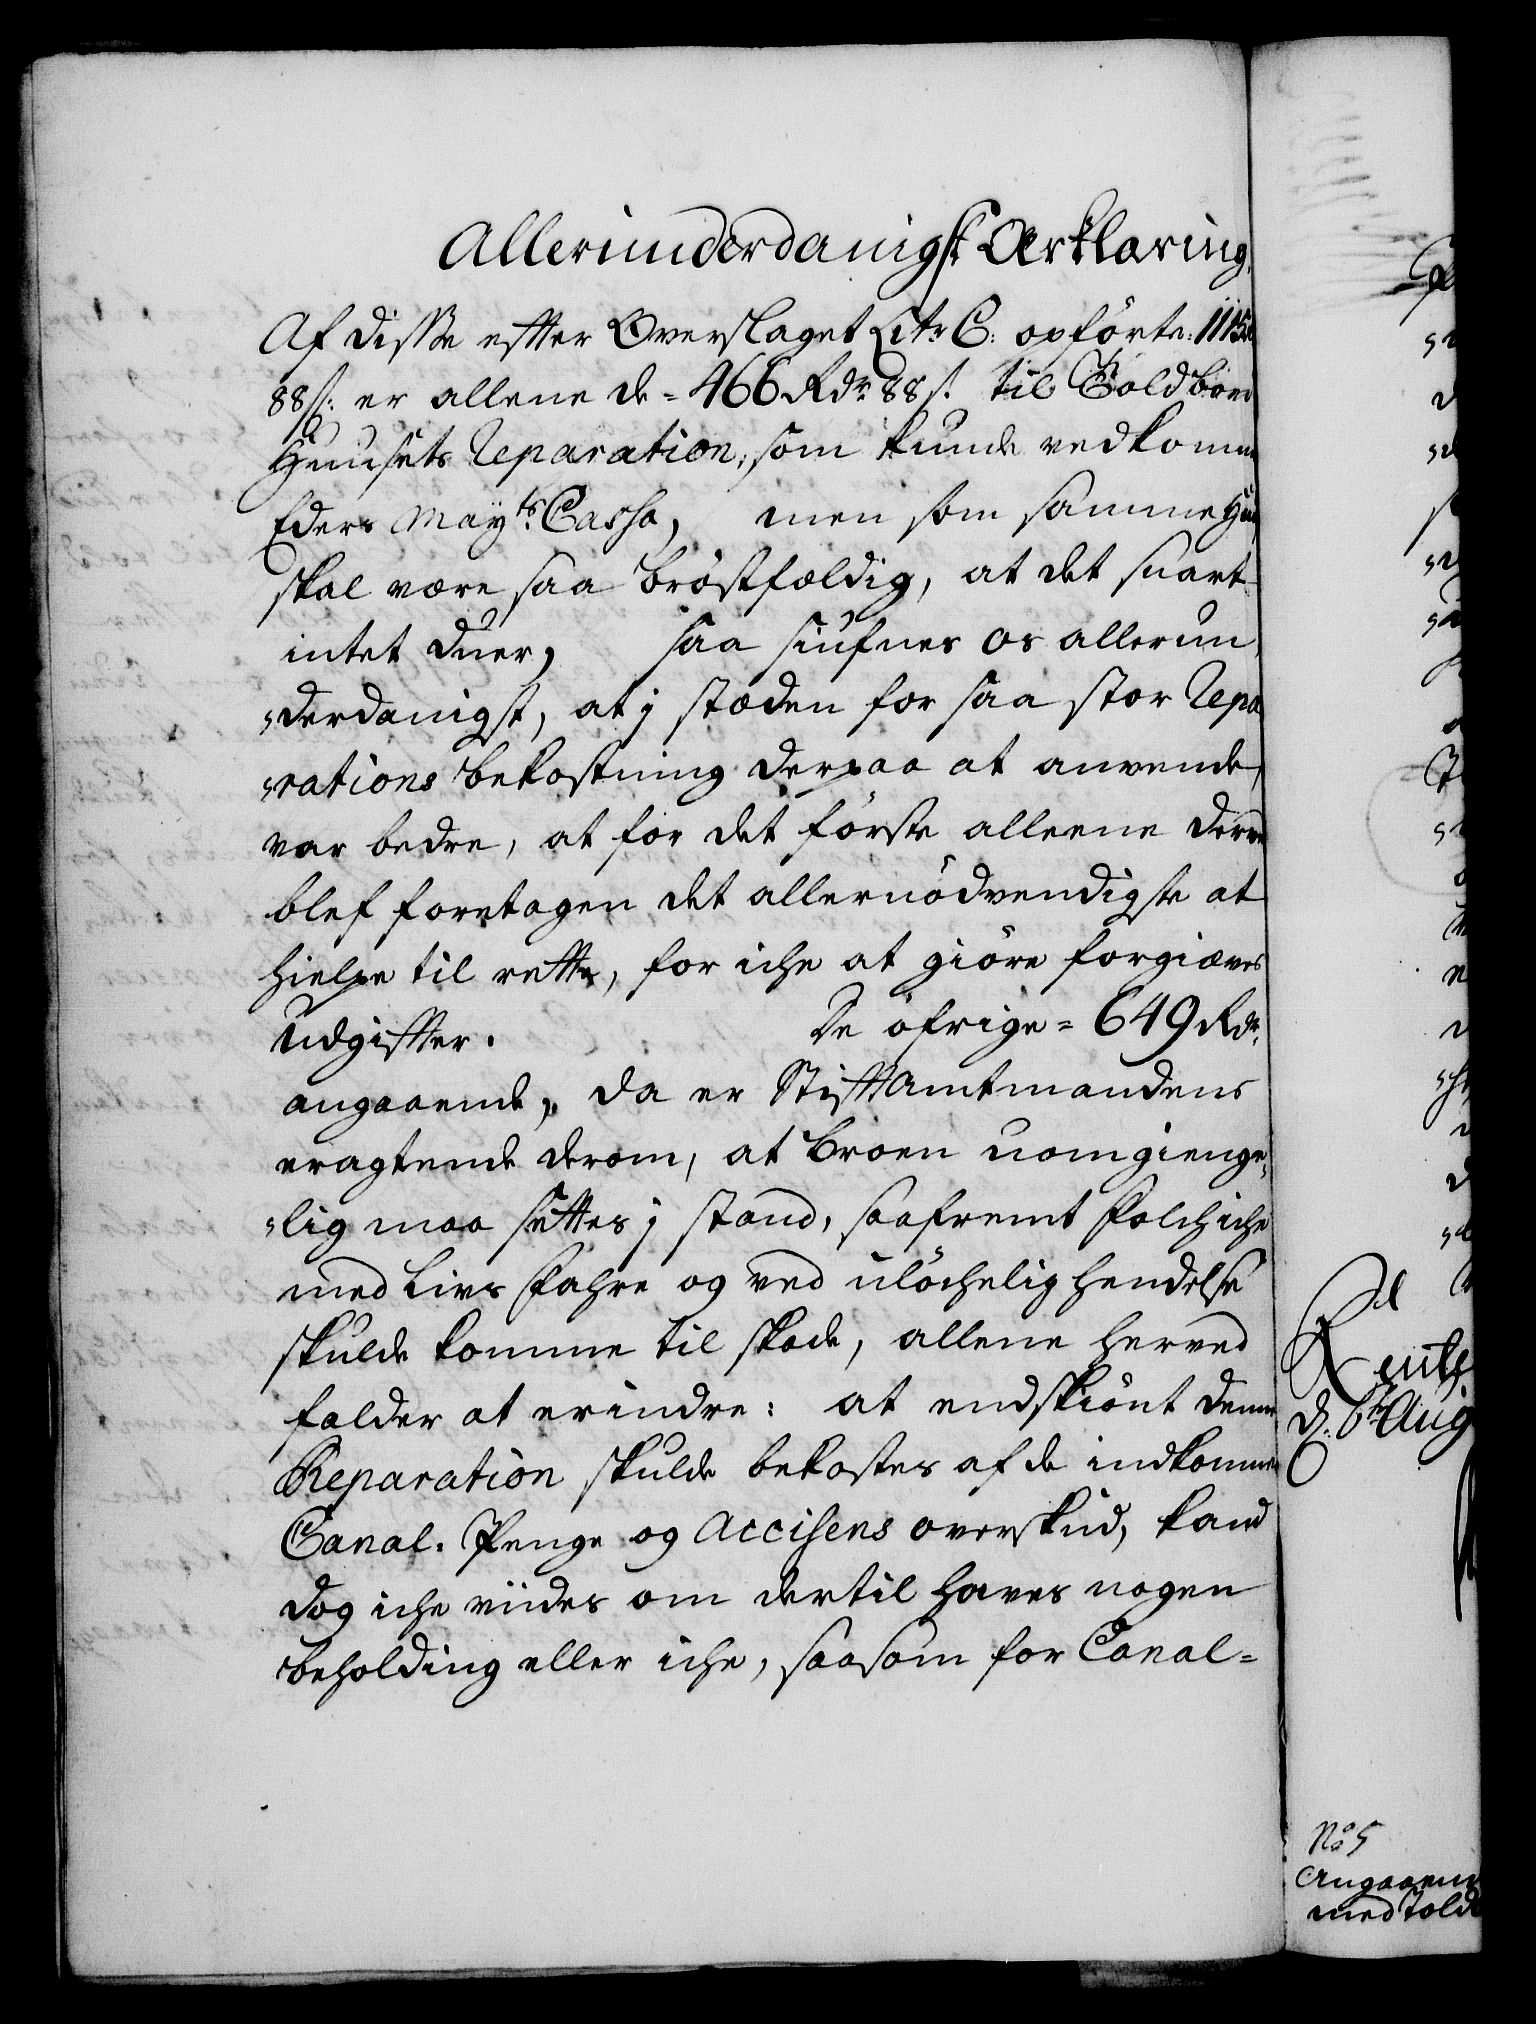 Allerunderdanigst Ærklæring.
Af disse efter Overslaget Litr C: opförte: 1115
88 s: er allene de = 466 Rdr 88 s. til Toldboed
Huusets Reparation, som kunde vedkomme
Eders Mayts Cassa, men som samme Huus
skal være saa bröstfældig, at det snart
intet duer, saa siufnes os allerun¬
„derdanigst, at j stæden for saa stor Repa
„rations bekostning derpaa at anvende,
var bedre, at for det förste alleene derved
blef foretagen det allernödvendigste at
hielpe til rette, for iche at giöre forgiæves
Udgifter. De öfrige = 649 Rdr.
angaaende, da er Stiftamtmandens
eragtende derom, at Broen uomgienge¬
„lig maa settes j stand, saafremt Folch iche
med Livs Fahre og ved ulöchelig hendelse
skulde komme til skade, allene herved
falder at erindre: at endskiönt denne
Reparation skulde bekostes af de indkommen
Canal-Penge og Accisens overskud, kand
dog iche viides om dertil haves nogen
beholding eller iche, saasom for Canal=
Rente
d. 6te Aug
No 5
Angaaen
med Told